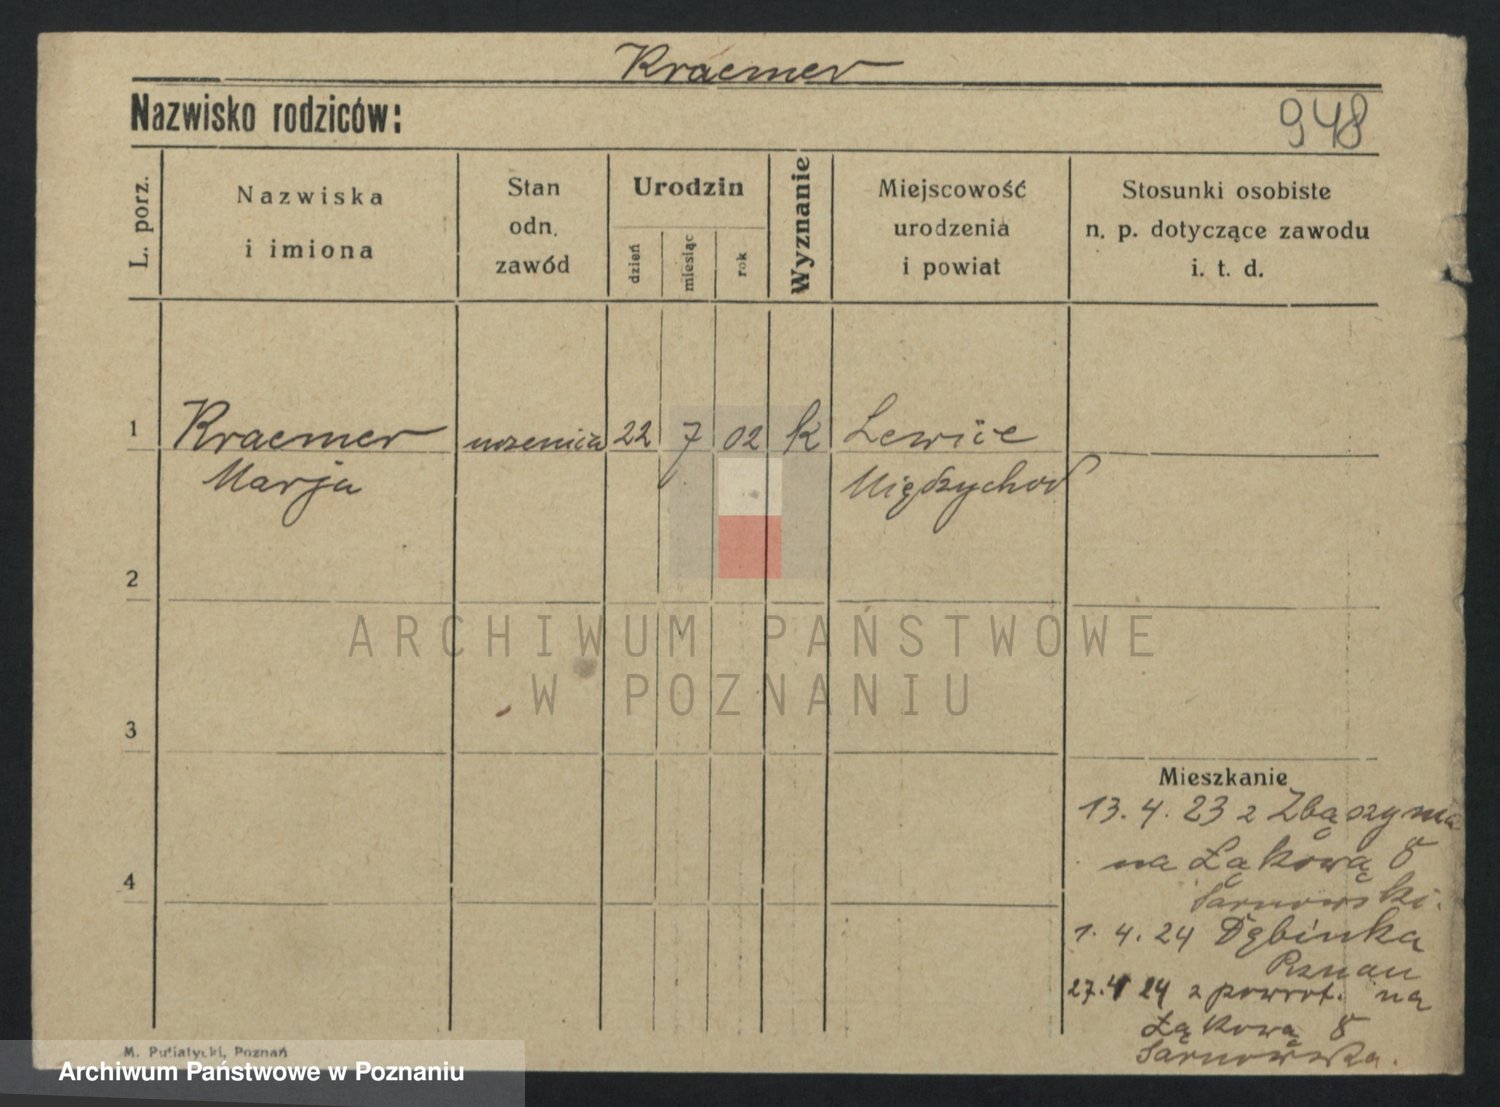 Kraemer
Nazwisko rodziców:
948
L. porz.
Nazwiska
i imiona
Stan
odn.
zawód
Urodzin
dzień
miesiąc
rok
Wyznanie
Miejscowość
urodzenia
i powiat
Stosunki osobiste
n. p. dotyczące zawodu
i. t. d.
1
Kraemer
Marja
uczenica
22
7
02
k
Lewice
Międzychod
2
3
4
ARCHIWUM PAŃSTWOWE
W POZNANIU
Mieszkanie
13. 4. 23 z Zbąszynia
na Łąkową 8
Sarnowski.
1. 4. 24 Dębinka
Poznań
27. 4 24 z powrot. na
Łąkową 8
Sarnowska.
M. Putiatycki, Poznań
Archiwum Państwowe w Poznaniu